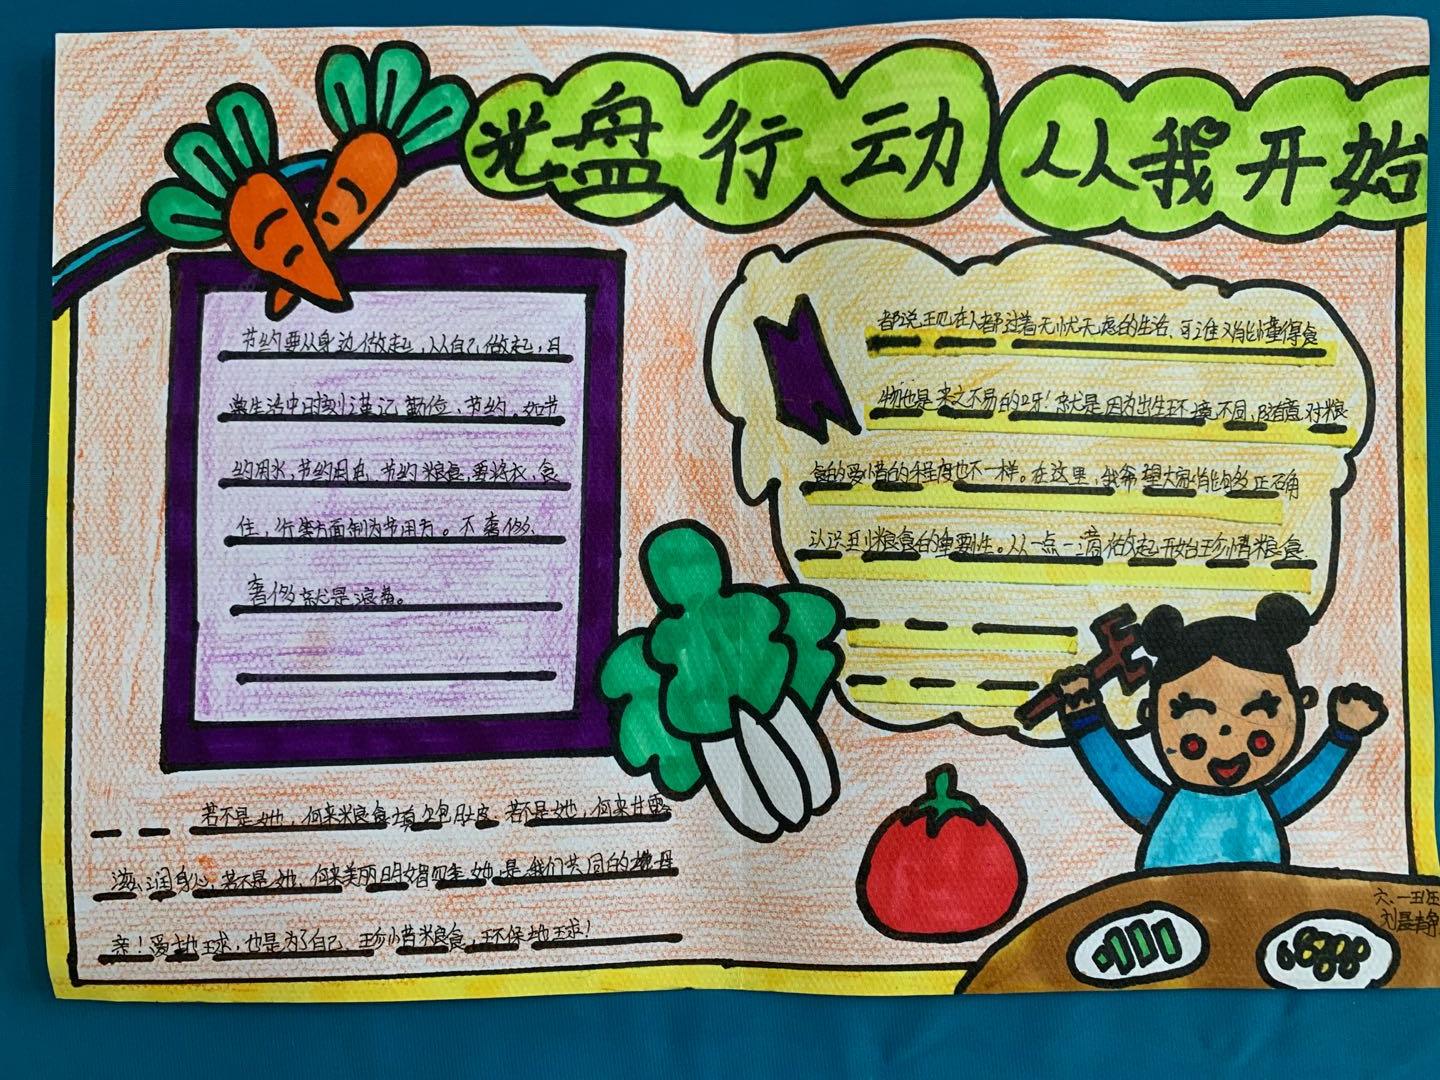 光盘行动 从我开始
节约要从身边做起，从自己做起，日
常生活中时刻谨记勤俭、节约。如节
约用水，节约用电，节约粮食，要将衣，食
住，行等方面制为节用为。不奢侈、
奢侈就是浪费。
都说现在人都过着无忧无虑的生活、可谁又能懂得食
物也是来之不易的呀！就是因为出生环境不同，随意对粮
食的爱惜的程度也不一样。在这里，我希望大家能够正确
认识到粮食的重要性。从一点一滴做起开始珍惜粮食
若不是她，何来粮食填饱肚皮。若不是她，何来甘露
滋润身心，若不是她、何来美丽明媚四季她是我们共同的地母
亲！爱地球，也是为了自己 珍惜粮食，环保地球！
六.一班